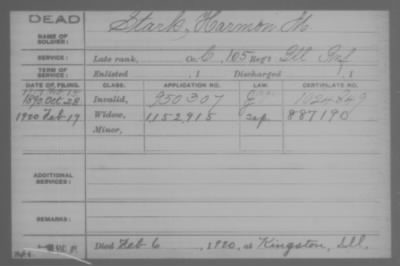 DEAD
NAME OF SOLDIER: Stark, Harmon
SERVICE: Late rank, Co. C, 105 Reg't Ill Inf
TERM OF SERVICE: Enlisted , 1 Discharged , 1
DATE OF FILING. CLASS. APPLICATION NO. LAW. CERTIFICATE NO.
1890 Oct. 28 Invalid, 950307
1920 Feb 17 Widow, 1152,915 887190
Minor,
ADDITIONAL SERVICES:
REMARKS:
Died Feb 6, 1920, at Kingston, Ill.